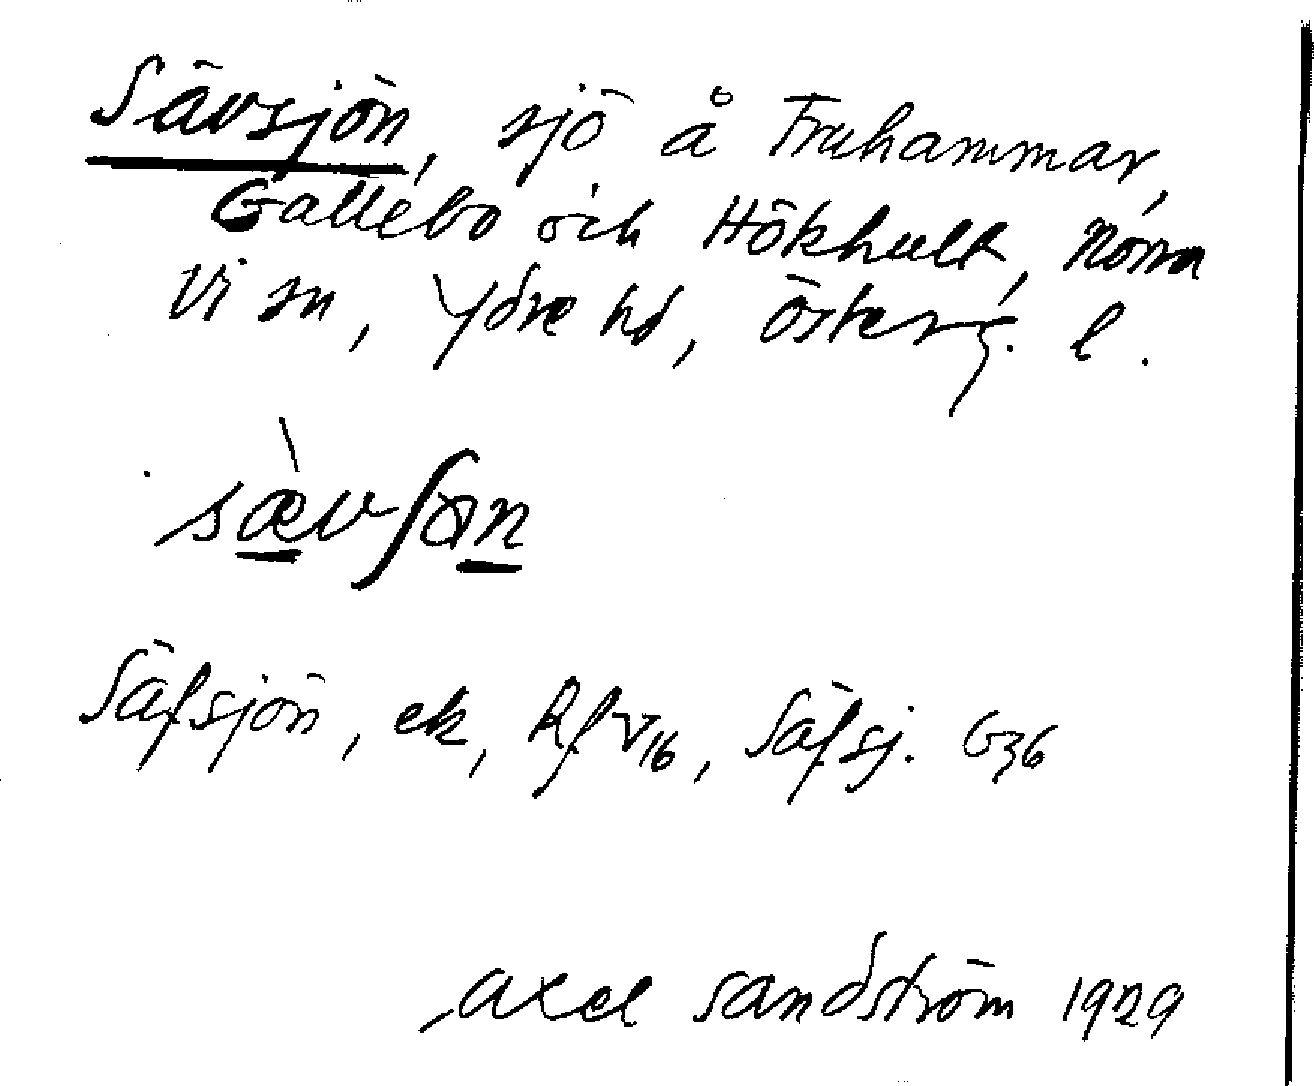 Sävsjön, sjö å Fruhammar,
Gallebo och Hökhult, Norra
Vi sn, Ydre hd, Österg. l.
sævʃɷn
Säfsjön, ek, Rf V16, Säfsj. G36
Axel Sandström 1929